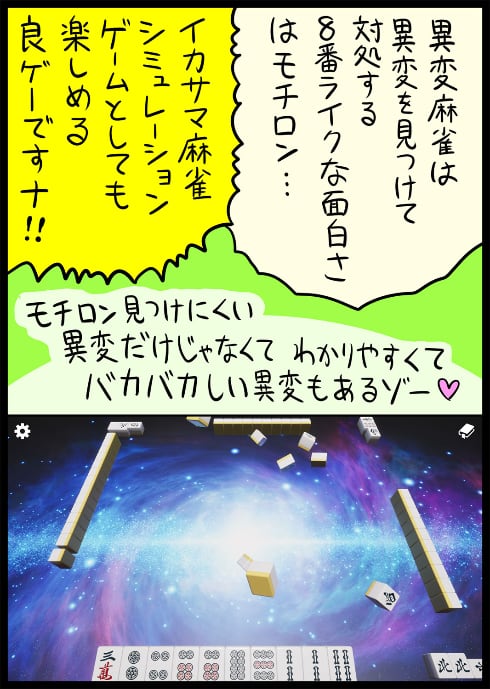 異変麻雀は
異変を見つけて
対処する
8番ライクな面白さ
はモチロン…
イカサマ麻雀
シミュレーション
ゲームとしても
楽しめる
良ゲーですナ!!
モチロン見つけにくい
異変だけじゃなくて わかりやすくて
バカバカしい異変もあるゾー♥
三萬
北北